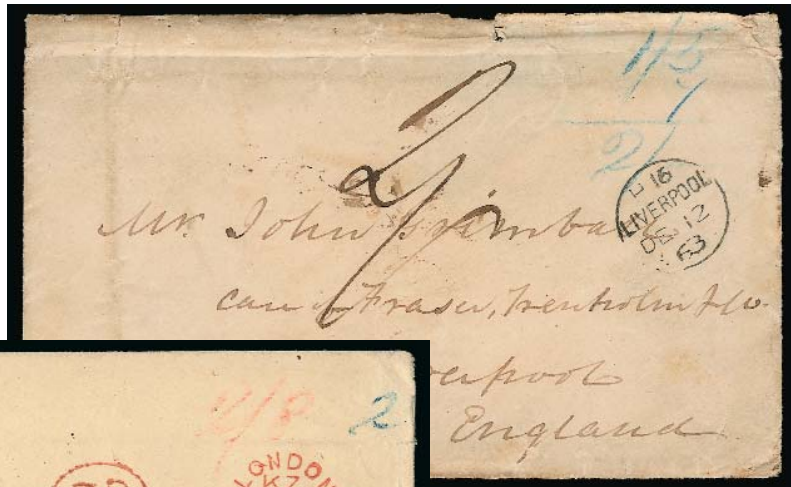 1/5
7
2/
2/
H 16
LIVERPOOL
DE 12
63
Mr. John
care of Fraser, Trenholm & Co.
erpool
England
2/8 2
LONDON
KZ